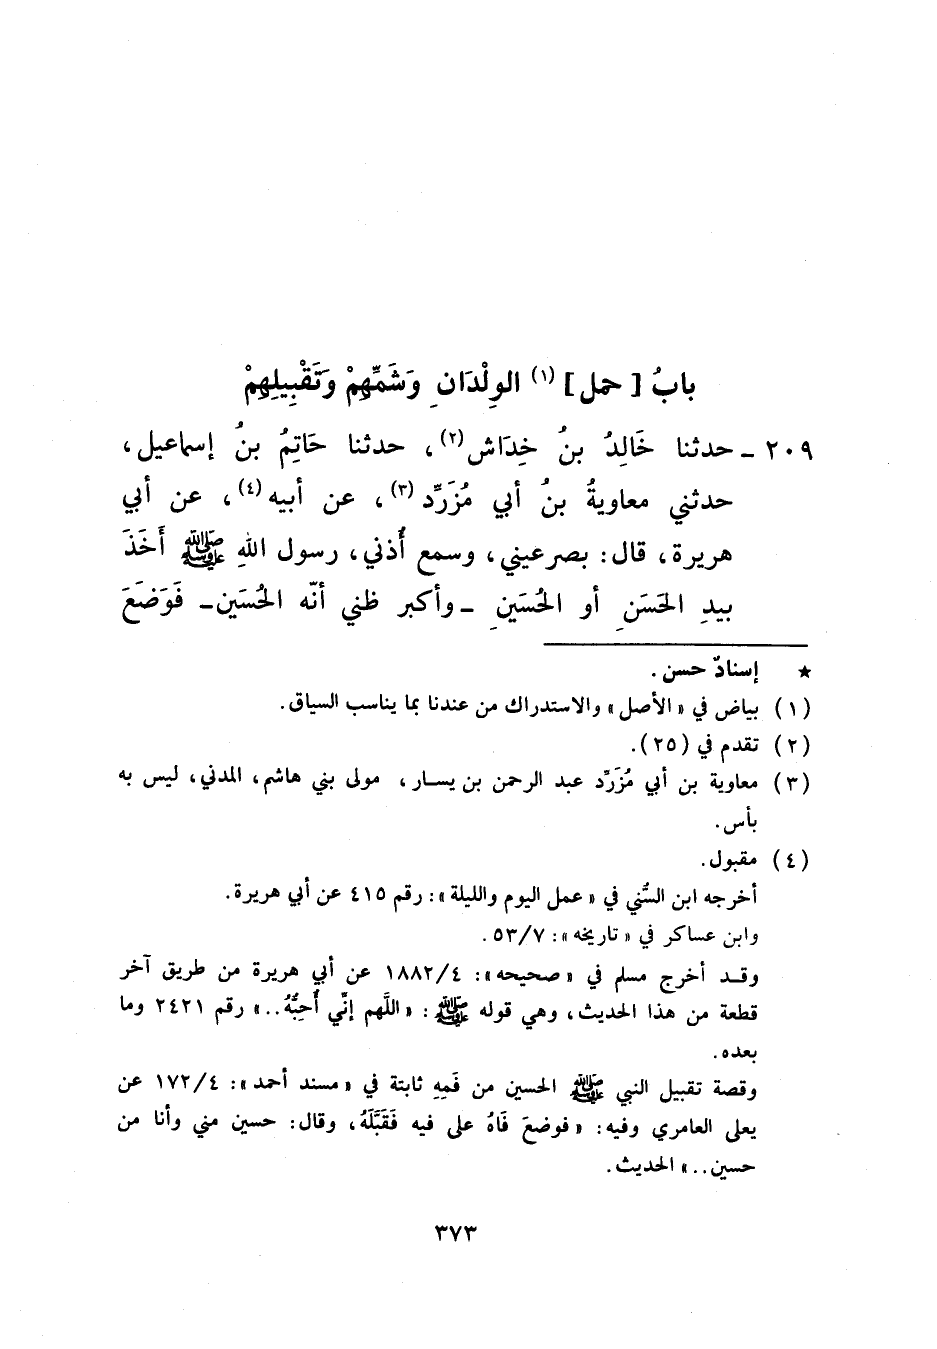 بابُ [ حمل ] (١) الوِلْدَانِ وَشَمِّهِمْ وَتَقْبِيلِهِمْ
٢٠٩ ـ حدثنا خَالِدُ بنُ خِدَاش(٢)، حدثنا حَاتِمُ بنُ إسماعيل،
حدثني معاويةُ بنُ أبي مُزَرِّد(٣)، عن أبيه(٤)، عن أبي
هريرة، قال: بصر عيني، وسمع أُذني، رسول اللهِ ﷺ أَخَذَ
بيدِ الحَسَنِ أو الحُسَينِ ـ وأكبر ظني أنّه الحُسَين ـ فَوَضَعَ
★ إسنادٌ حسن.
(١) بياض في «الأصل» والاستدراك من عندنا بما يناسب السياق.
(٢) تقدم في (٢٥).
(٣) معاوية بن أبي مُزَرِّد عبد الرحمن بن يسار، مولى بني هاشم، المدني، ليس به
بأس.
(٤) مقبول.
أخرجه ابن السُّني في «عمل اليوم والليلة»: رقم ٤١٥ عن أبي هريرة.
وابن عساكر في «تاريخه»: ٥٣/٧.
وقد أخرج مسلم في «صحيحه»: ١٨٨٢/٤ عن أبي هريرة من طريق آخر
قطعة من هذا الحديث، وهي قوله ﷺ: «اللَّهم إنّي أُحِبُّهُ..» رقم ٢٤٢١ وما
بعده.
وقصة تقبيل النبي ﷺ الحسين من فَمِهِ ثابتة في «مسند أحمد»: ١٧٢/٤ عن
يعلى العامري وفيه: «فوضعَ فَاهُ على فيه فَقَبَّلَهُ، وقال: حسين مني وأنا من
حسين..» الحديث.
٣٧٣